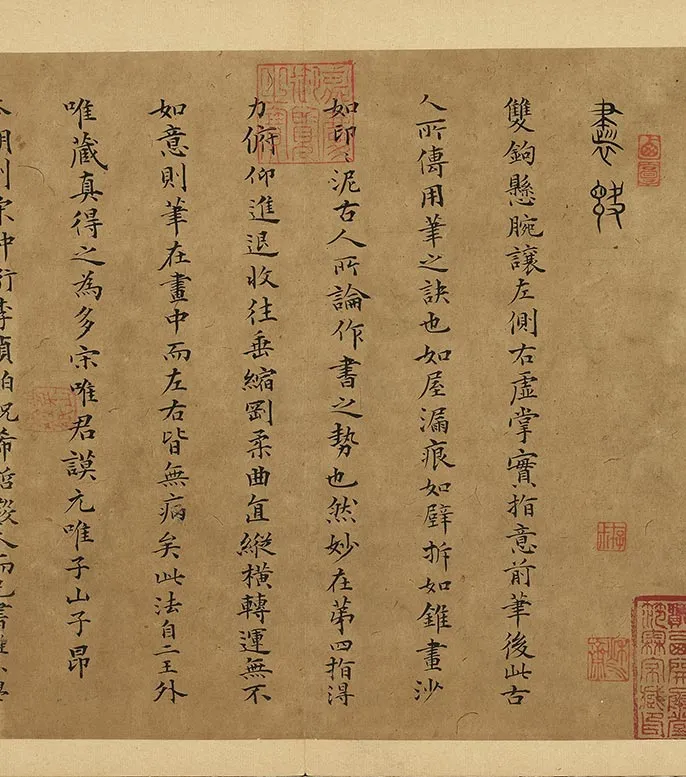 書訣
雙鉤懸腕讓左側右虛掌實指意前筆後此古
人所傳用筆之訣也如屋漏痕如壁折如錐畫沙
如印〻泥古人所論作書之勢也然妙在第四指得
力俯仰進退收往垂縮剛柔曲直縱橫轉運無不
如意則筆在畫中而左右皆無病矣此法自二王外
唯藏真得之為多宋唯君謨元唯子山子昂
朝則宋仲李貞伯祝希哲人而已書